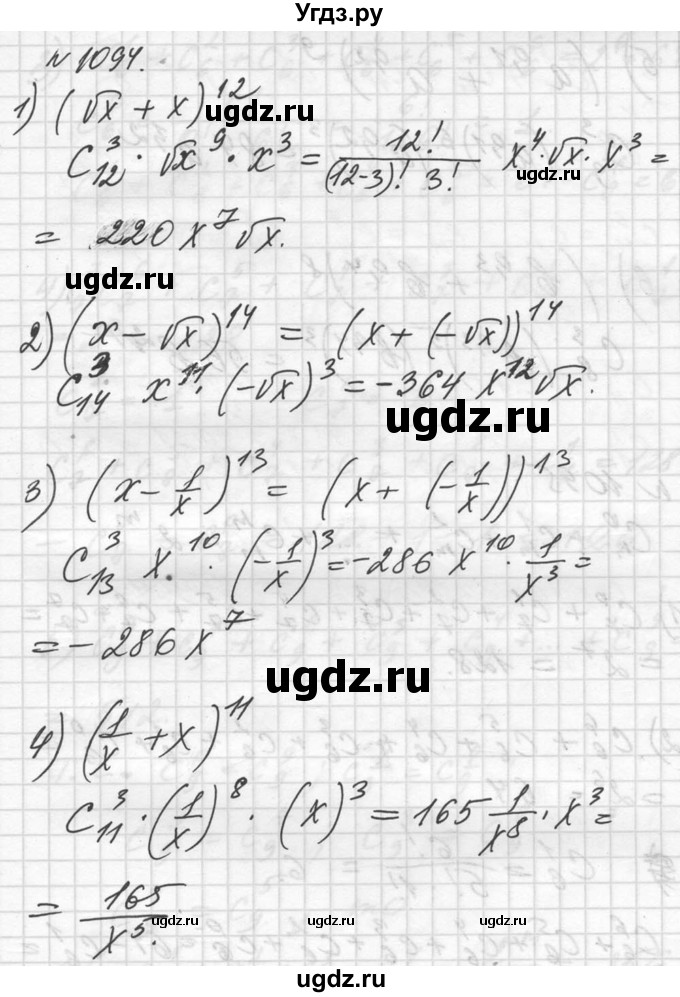 Угдз.ру
№1094.
1) (√x + x)^12
ugdz.ru
C_12^3 · √x^9 · x^3 = 12!/((12-3)! 3!) x^4·√x · x^3 =
ugdz.ru
= 220 x^7 √x.
ugdz.ru
2) (x - √x)^14 = (x + (-√x))^14
C_14^3 x^11 · (-√x)^3 = -364 x^12 √x.
ugdz.ru
3) (x - 1/x)^13 = (x + (-1/x))^13
C_13^3 x^10 · (-1/x)^3 = -286 x^10 · 1/x^3 =
= -286 x^7
ugdz.ru
4) (1/x + x)^11
C_11^3 · (1/x)^8 · (x)^3 = 165 1/x^8 · x^3 =
= 165/x^5.
ugdz.ru ugdz.ru ugdz.ru
ugdz.ru